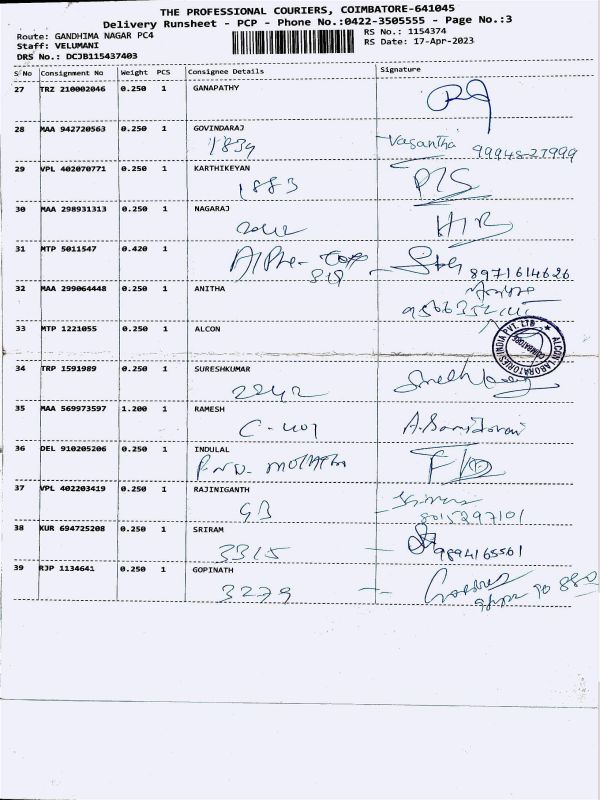 THE PROFESSIONAL COURIERS, COIMBATORE-641045
Delivery Runsheet - PCP - Phone No.:0422-3505555 - Page No.:3
Route: GANDHIMA NAGAR PC4 RS No.: 1154374
Staff: VELUMANI RS Date: 17-Apr-2023
DRS No.: DCJB115437403
S No Consignment No Weight PCS Consignee Details Signature
27 TRZ 210002046 0.250 1 GANAPATHY
28 MAA 942720563 0.250 1 GOVINDARAJ
1839 Vasantha 99948-27999
29 VPL 402070771 0.250 1 KARTHIKEYAN
1883
30 MAA 298931313 0.250 1 NAGARAJ
31 MTP 5011547 0.420 1
8971614626
32 MAA 299064448 0.250 1 ANITHA
33 MTP 1221055 0.250 1 ALCON
ALCON LABORATORIES INDIA PVT. LTD. COIMBATORE
34 TRP 1591989 0.250 1 SURESHKUMAR
2242
35 MAA 569973597 1.200 1 RAMESH
36 DEL 910205206 0.250 1 INDULAL
37 VPL 402203419 0.250 1 RAJINIGANTH
8015297101
38 KUR 694725208 0.250 1 SRIRAM
3315 9894165561
39 RJP 1134641 0.250 1 GOPINATH
3279